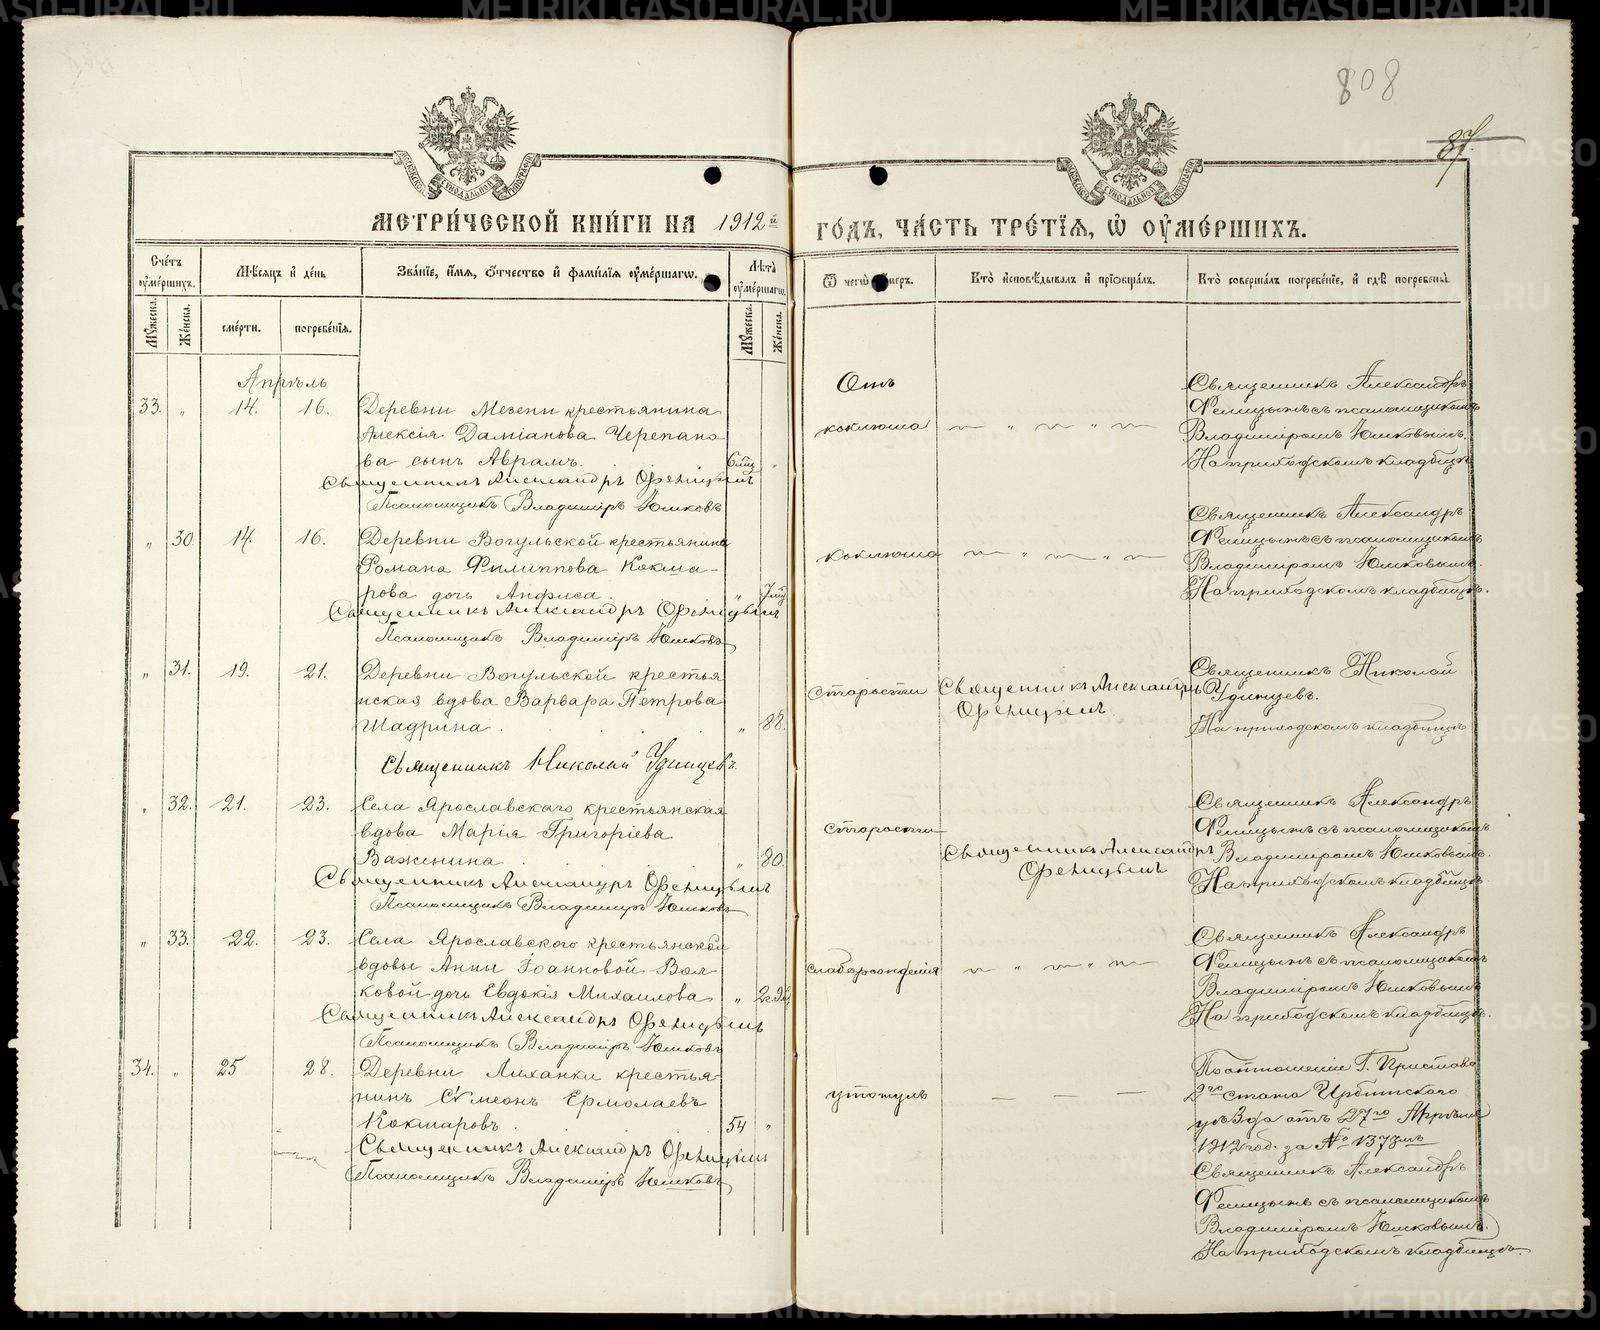 808
87
МЕТРИ́ЧЕСКОЙ КНИ́ГИ НА 1912й ГО́ДЪ, ЧА́СТЬ ТРЕ́ТІЯ, Ѡ ОУМЕ́РШИХЪ.
Сче́тъ оумéршихъ.
Мѣсяцъ и день
Зва́ніе, и́мя, о́тчество и фами́лія оумéршагѡ.
Лѣта оумéршагѡ.
Ѿ чегѡ оумеръ.
Кто исповѣдывалъ и пріобщалъ.
Кто совершалъ погребе́ніе, и гдѣ погребены.
Мужеска.
Женска.
смéрти.
погребéнія.
Мужеска.
Женска.
Апрѣль
33. „ 14. 16. Деревни Мезени крестьянина
Алексія Даміанова Черепано
ва сынъ Аврамъ. 6 мц „
Священникъ Александръ Фелицынъ
Псаломщикъ Владиміръ Юшковъ
Отъ
коклюша
Священникъ Александръ
Фелицынъ съ псаломщикомъ
Владиміромъ Юшковымъ.
На приходскомъ кладбищѣ
„ 30 14. 16. Деревни Вогульской крестьянина
Романа Филиппова Кокша-
рова дочь Анфиса. „ 7 мц
Священникъ Александръ Фелицынъ
Псаломщикъ Владиміръ Юшковъ
коклюша
Священникъ Александръ
Фелицынъ съ псаломщикомъ
Владиміромъ Юшковымъ.
На приходскомъ кладбищѣ.
„ 31. 19. 21. Деревни Вогульской крестья
нская вдова Варвара Петрова
Шадрина. „ 88.
Священникъ Николай Удинцевъ.
старости
Священникъ Александръ
Фелицынъ.
Священникъ Николай
Удинцевъ.
На приходскомъ кладбищѣ
„ 32. 21. 23. Села Ярославскаго крестьянская
вдова Марія Григоріева
Важенина „ 80.
Священникъ Александръ Фелицынъ
Псаломщикъ Владиміръ Юшковъ
старости
Священникъ Александръ
Фелицынъ
Священникъ Александръ
Фелицынъ съ псаломщикомъ
Владиміромъ Юшковымъ.
На приходскомъ кладбищѣ.
„ 33. 22. 23. Села Ярославского крестьянской
вдовы Анны Іоанновой Вол-
ковой дочь Евдокія Михаилова „
Священникъ Александръ Фелицынъ
Псаломщикъ Владиміръ Юшковъ
слаборожденія
Священникъ Александръ
Фелицынъ съ псаломщикомъ
Владиміромъ Юшковымъ
На приходскомъ кладбищѣ.
34. „ 25 28. Деревни Лиханки крестья-
нинъ Сѵмеонъ Ермолаевъ
Кокшаровъ 54 „
Священникъ Александръ Фелицынъ
Псаломщикъ Владиміръ Юшковъ
утонулъ
По отношенію Г. Пристава
2го стана Ирбитского
уѣзда отъ 27го Апрѣля
1912 год. за № 1373мъ
Священникъ Александръ
Фелицынъ съ псаломщикомъ
Владиміромъ Юшковымъ.
На приходскомъ кладбищѣ.
METRIKI.GASO-URAL.RU